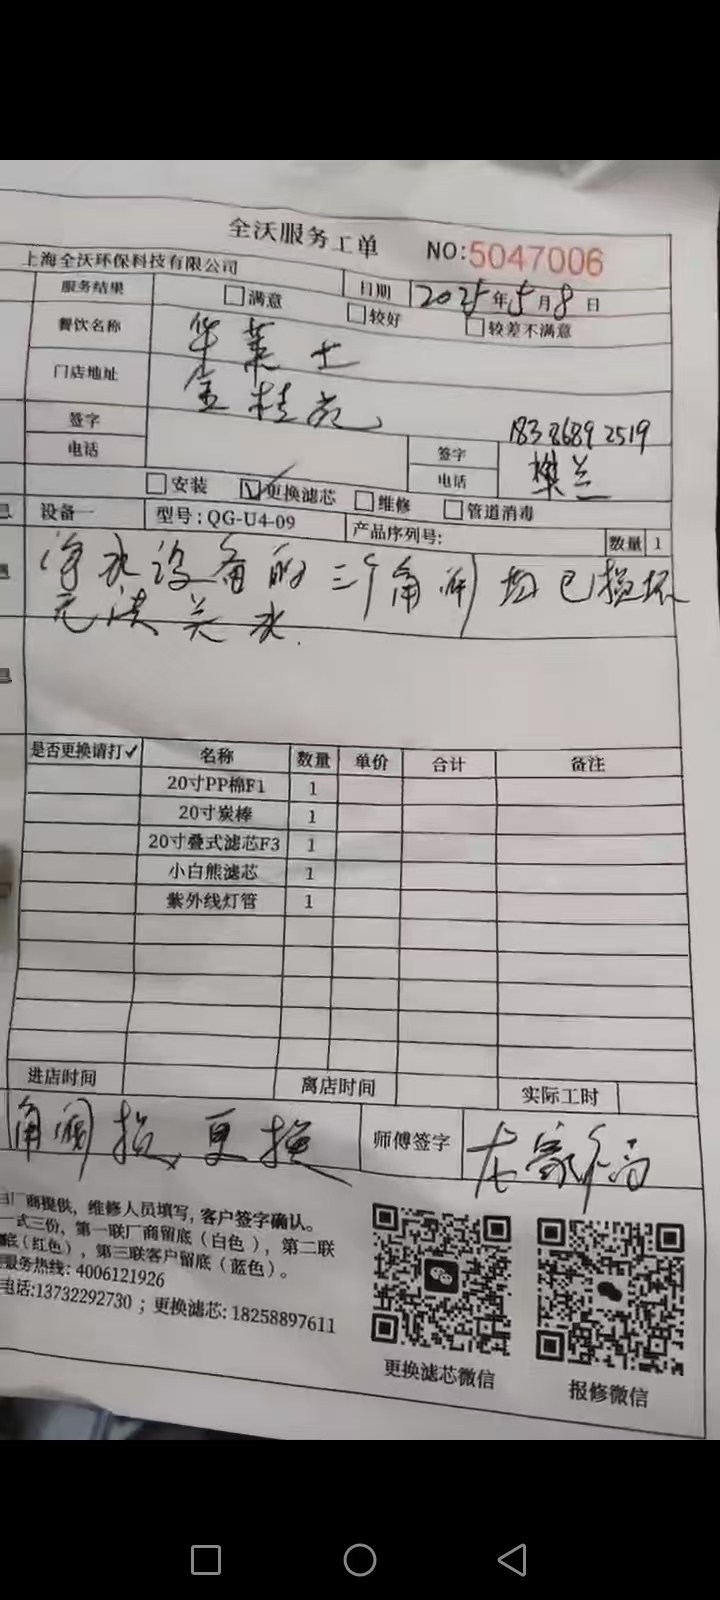 全沃服务工单 NO:5047006
上海全沃环保科技有限公司 日期 2025年5月8日
服务结果 满意 较好 较差不满意
餐饮名称 华莱士
门店地址 金桂苑
签字 签字 18386892519
电话 电话 樊兰
安装 更换滤芯 维修 管道消毒
设备一 型号:QG-U4-09 产品序列号: 数量 1
净水设备的三个角阀均已损坏
无法关水.
是否更换请打✓ 名称 数量 单价 合计 备注
20寸PP棉F1 1
20寸炭棒 1
20寸叠式滤芯F3 1
小白熊滤芯 1
紫外线灯管 1
进店时间 离店时间 实际工时
角阀损 更换 师傅签字
厂商提供，维修人员填写，客户签字确认。
一式三份，第一联厂商留底（白色），第二联
底（红色），第三联客户留底（蓝色）。
服务热线: 4006121926
电话:13732292730 ；更换滤芯: 18258897611
更换滤芯微信 报修微信